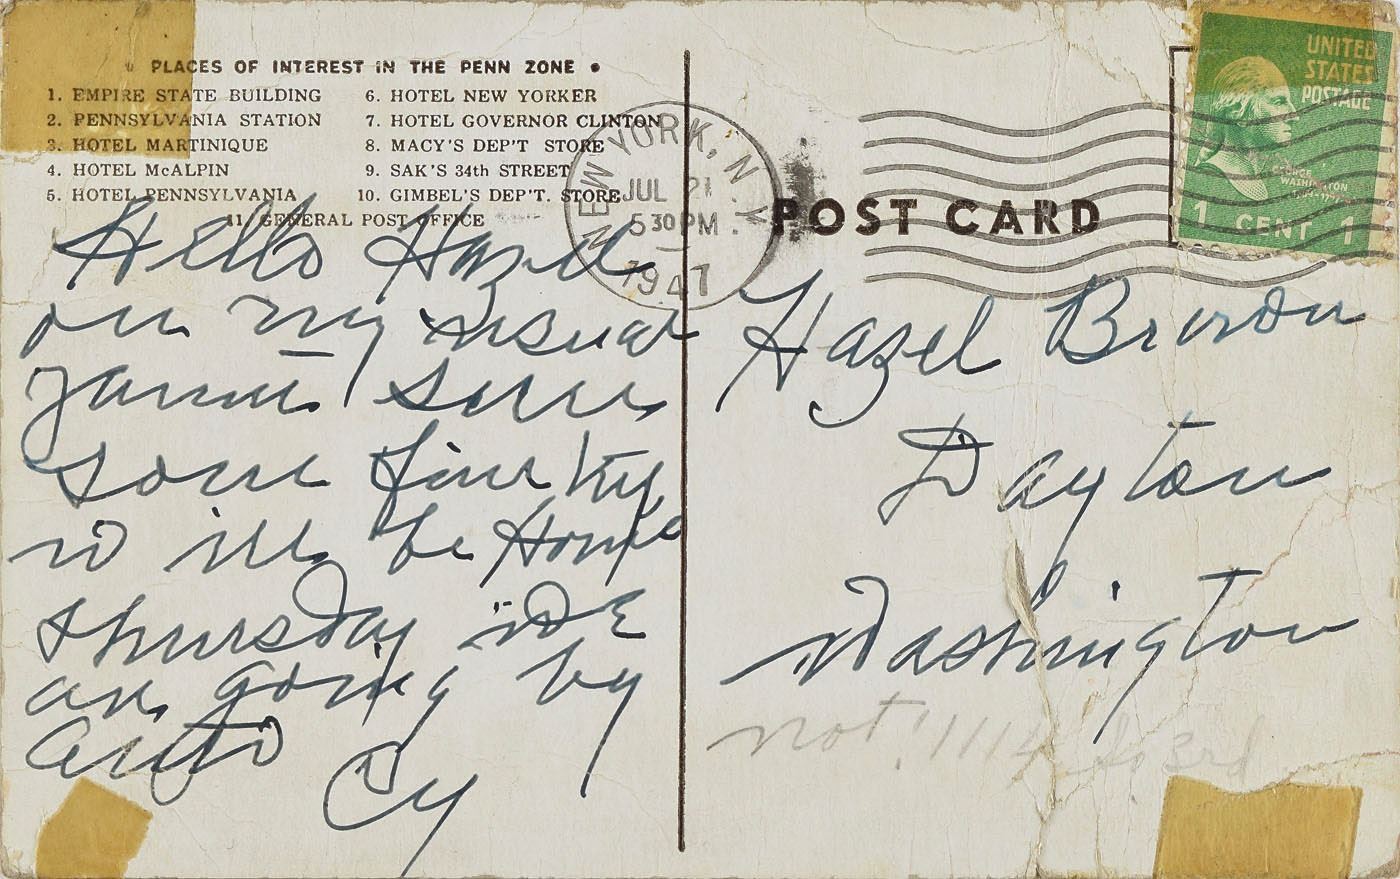 PLACES OF INTEREST IN THE PENN ZONE •
1. EMPIRE STATE BUILDING
2. PENNSYLVANIA STATION
3. HOTEL MARTINIQUE
4. HOTEL McALPIN
5. HOTEL PENNSYLVANIA
6. HOTEL NEW YORKER
7. HOTEL GOVERNOR CLINTON
8. MACY'S DEP'T STORE
9. SAK'S 34th STREET
10. GIMBEL'S DEP'T. STORE
11. GENERAL POST OFFICE
Hello Hazel
on my usual
seen
some fine
ill be Home
thursday we
are going by
auto
Cy
NEW YORK, N.Y.
JUL 21
5 30 PM
1947
POST CARD
UNITED
STATES
POSTAGE
GEORGE
WASHINGTON
1 CENT 1
Hazel Brown
Dayton
Washington
not
3rd